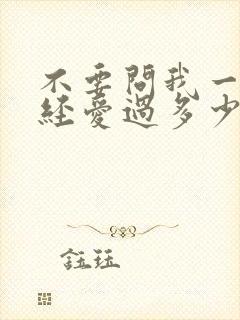 不要問我一
經愛過多少
鈺珏